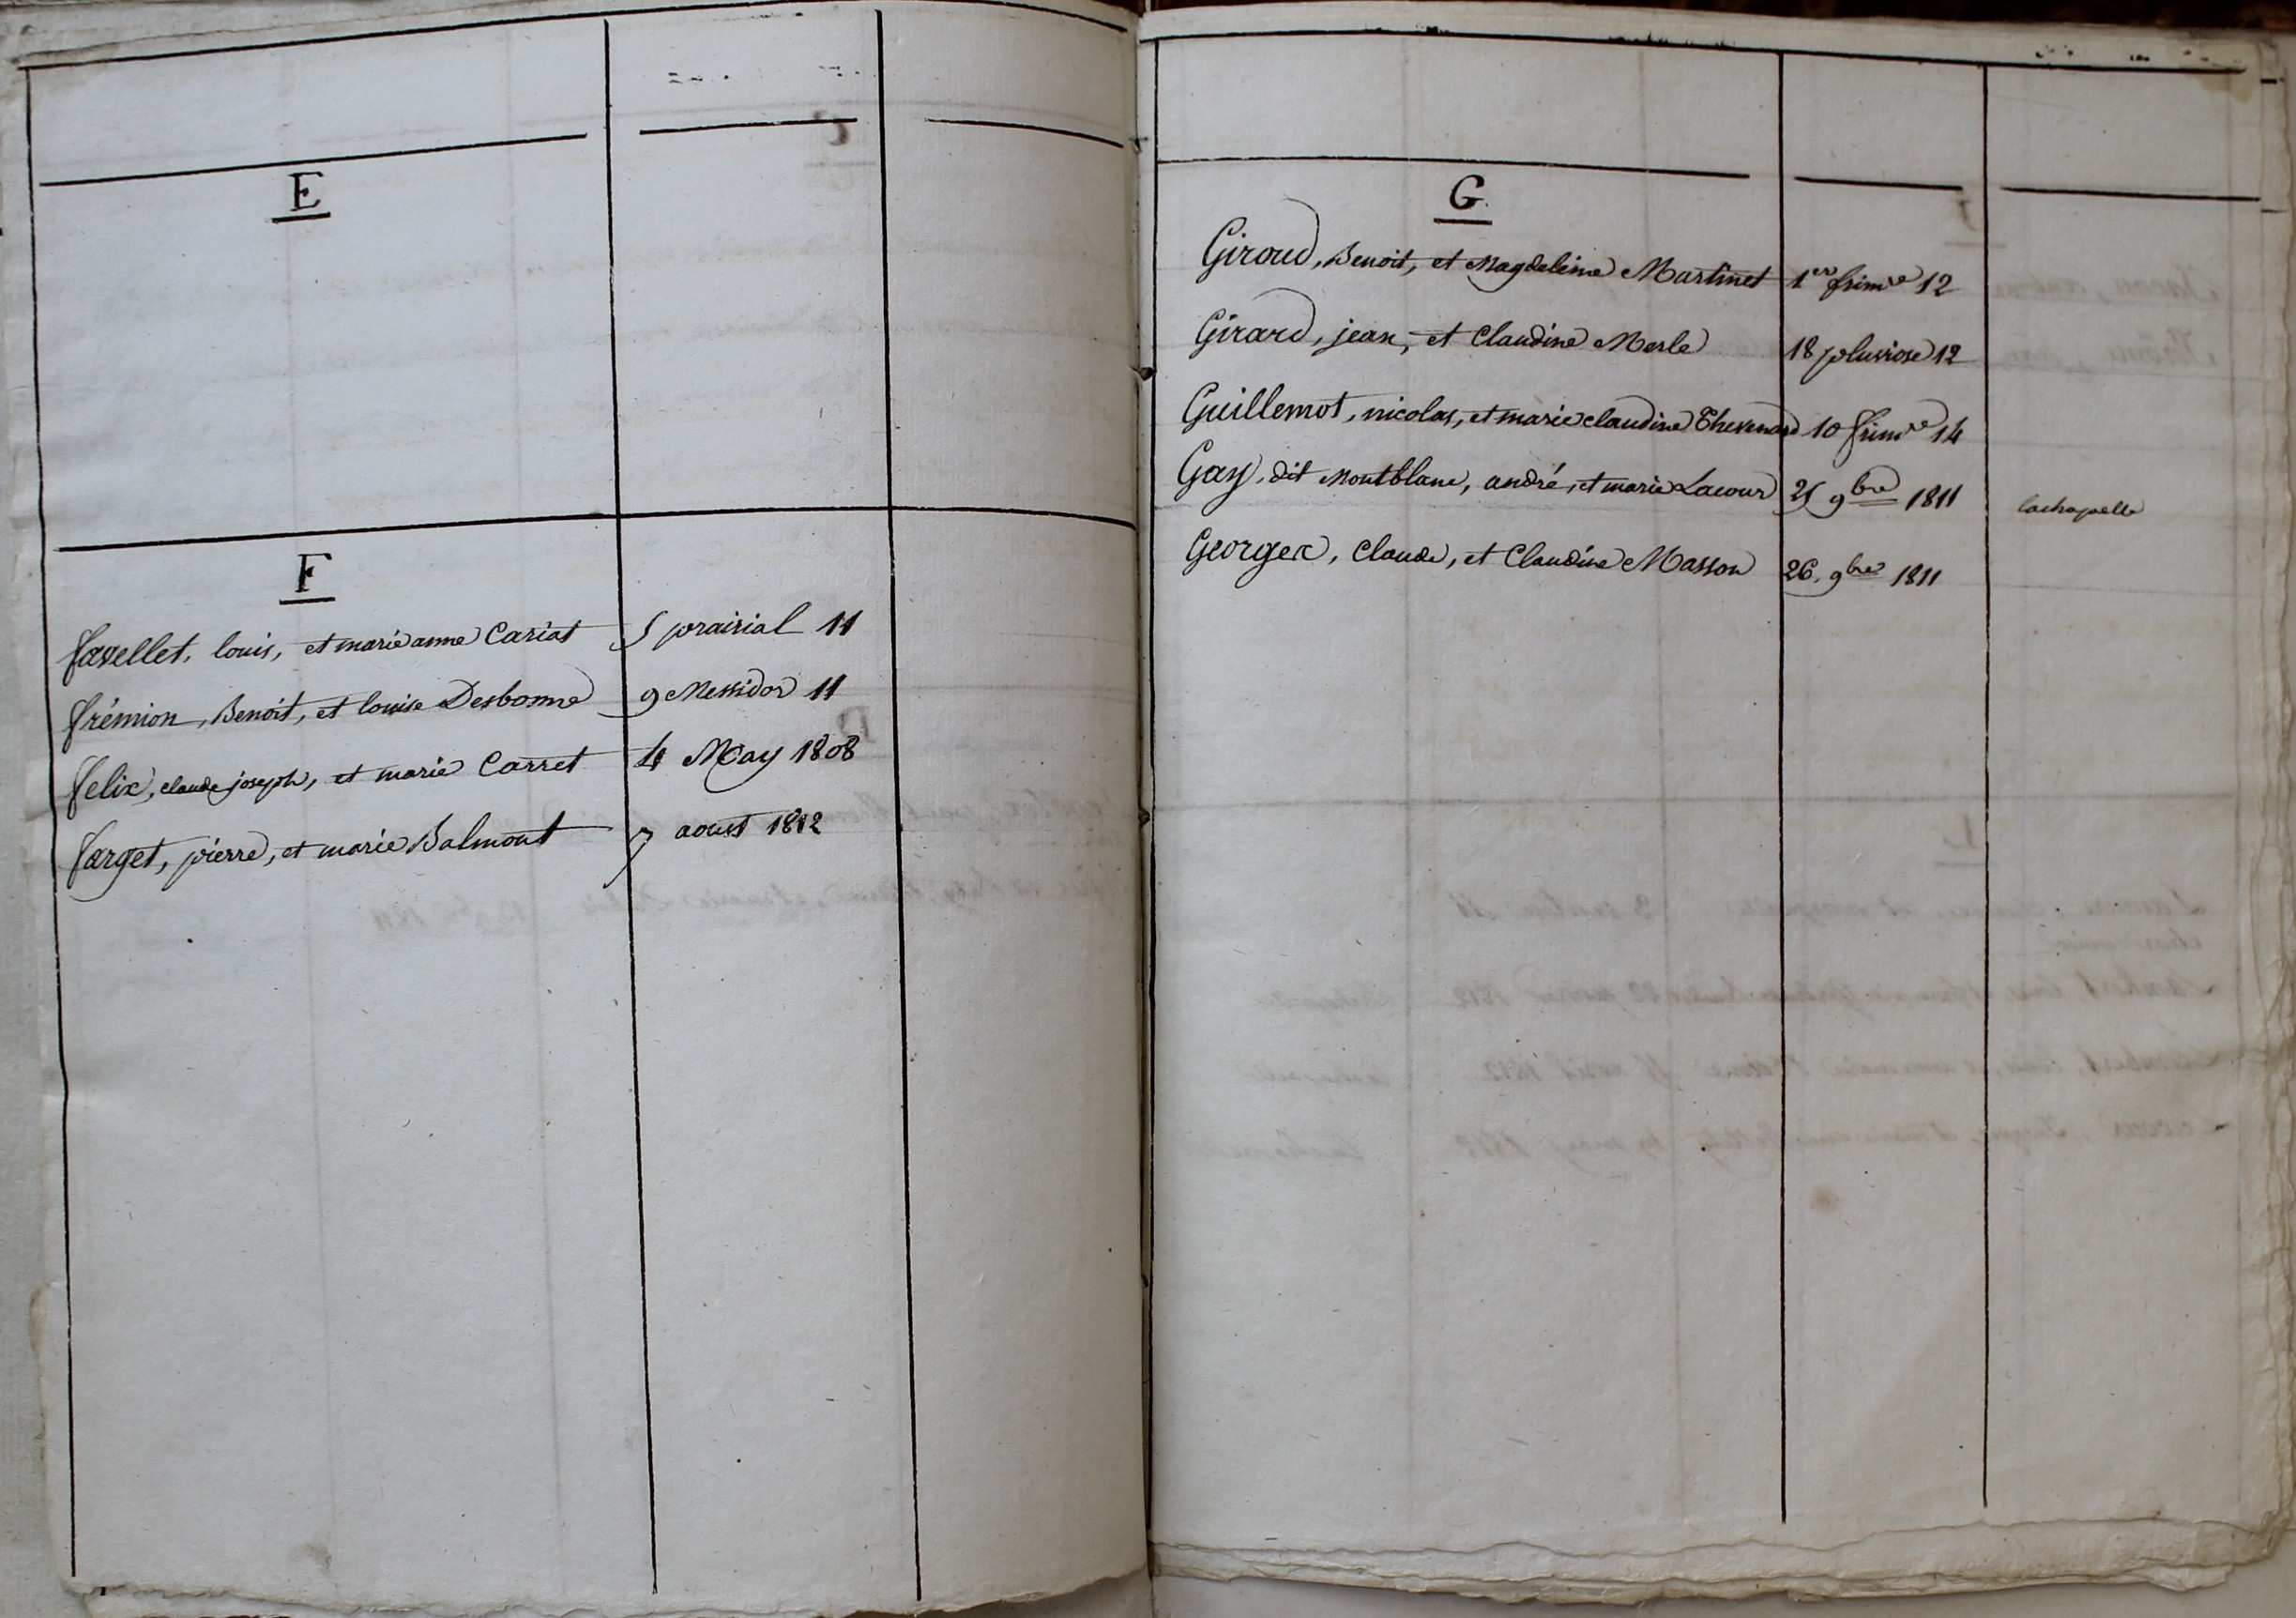 E
F
favellet, louis, et marie anne Cariat 5 prairial 11
frémion, Benoit, et louise Desbonne 9 Messidor 11
felix, claude joseph, et marie Carret 4 May 1808
farget, pierre, et marie Balmont 7 aoust 1812
G.
Giroud, Benoit, et Magdeleine Martinet 1er frimre 12
Girard, jean, et Claudine Merle 18 pluviose 12
Guillemot, nicolas, et marie claudine Thevenard 10 frimre 14
Gay, dit Montblanc, andré, et marie Lacour 25 9bre 1811 lachapelle
Georges, Claude, et Claudine Masson 26. 9bre 1811